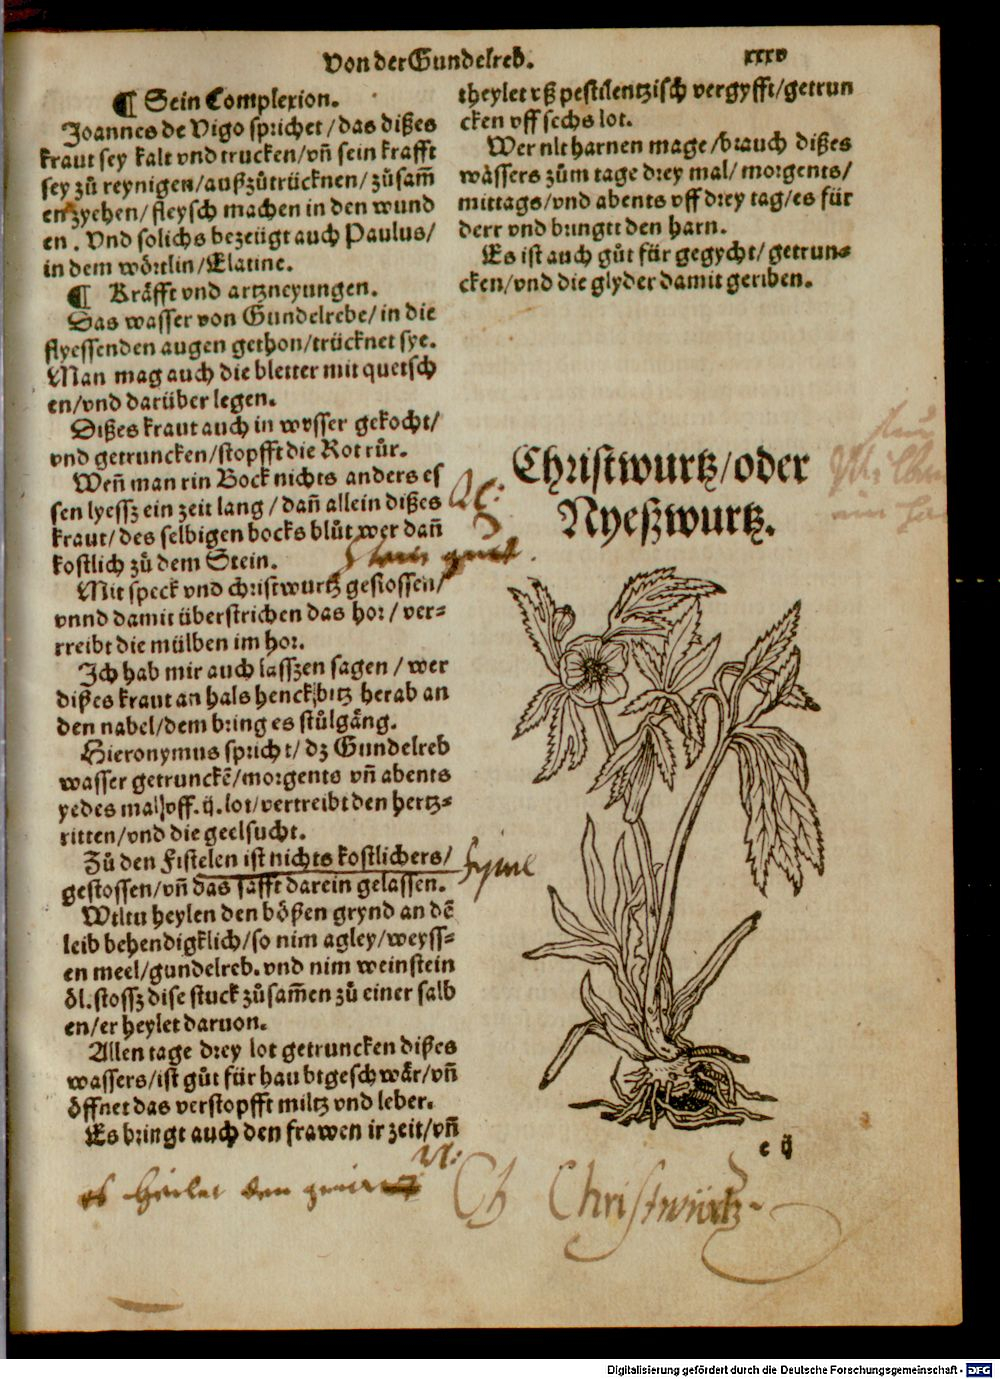 Von der Gundelreb.
xxxv
¶ Sein Complexion.
Joannes de Vigo sprichet / das dißes
kraut sey kalt vnd trucken / vñ sein krafft
sey zů reynigen / außzůtrücknen / zůsam̃
enzyehen / fleysch machen in den wund
en. Vnd solichs bezeügt auch Paulus /
in dem wörtlin / Elatine.
¶ Kräfft vnd artzneyungen.
Das wasser von Gundelrebe / in die
flyessenden augen gethon / trücknet sye.
Man mag auch die bletter mit quetsch
en / vnd darüber legen.
Dißes kraut auch in wysser gekocht /
vnd getruncken / stopfft die Rot růr.
Weñ man ein Bock nichts anders es
sen lyessz ein zeit lang / dañ allein dißes
kraut / des selbigen bocks blůt wer dañ
kostlich zů dem Stein.
Stein guet.
Mit speck vnd christwurtz gestossen /
vnnd damit überstrichen das hor / ver⸗
rreibt die mülben im hor.
Ich hab mir auch lasszen sagen / wer
dißes kraut an hals henck / bitz herab an
den nabel / dem bring es stůlgäng.
Hieronymus spricht / dz Gundelreb
wasser getrunckẽ / morgents vñ abents
yedes mal / vff. ij. lot / vertreibt den hertz⸗
ritten / vnd die geelsucht.
Zů den Fistelen ist nichts kostlichers /
gestossen / vñ das safft darein gelassen.
Wiltu heylen den bößen grynd an dẽ
leib behendigklich / so nim agley / weyss⸗
en meel / gundelreb. vnd nim weinstein
öl. stossz dise stuck zůsam̃en zů einer salb
en / er heylet daruon.
Allen tage drey lot getruncken dißes
wassers / ist gůt für haubtgeschwär / vñ
öffnet das verstopfft miltz vnd leber.
Es bringt auch den frawen ir zeit / vñ
theylet vß pestilentzisch vergyfft / getrun
cken vff sechs lot.
Wer nit harnen mage / brauch dißes
wässers zům tage drey mal / morgents /
mittags / vnd abents vff drey tag / es für
derr vnd bringtt den harn.
Es ist auch gůt für gegycht / getrun⸗
cken / vnd die glyder damit geriben.
Christwurtz / oder
Nyeßwurtz.
e ij
es heilet den
Ch Christwürtz
Digitalisierung gefördert durch die Deutsche Forschungsgemeinschaft - DFG